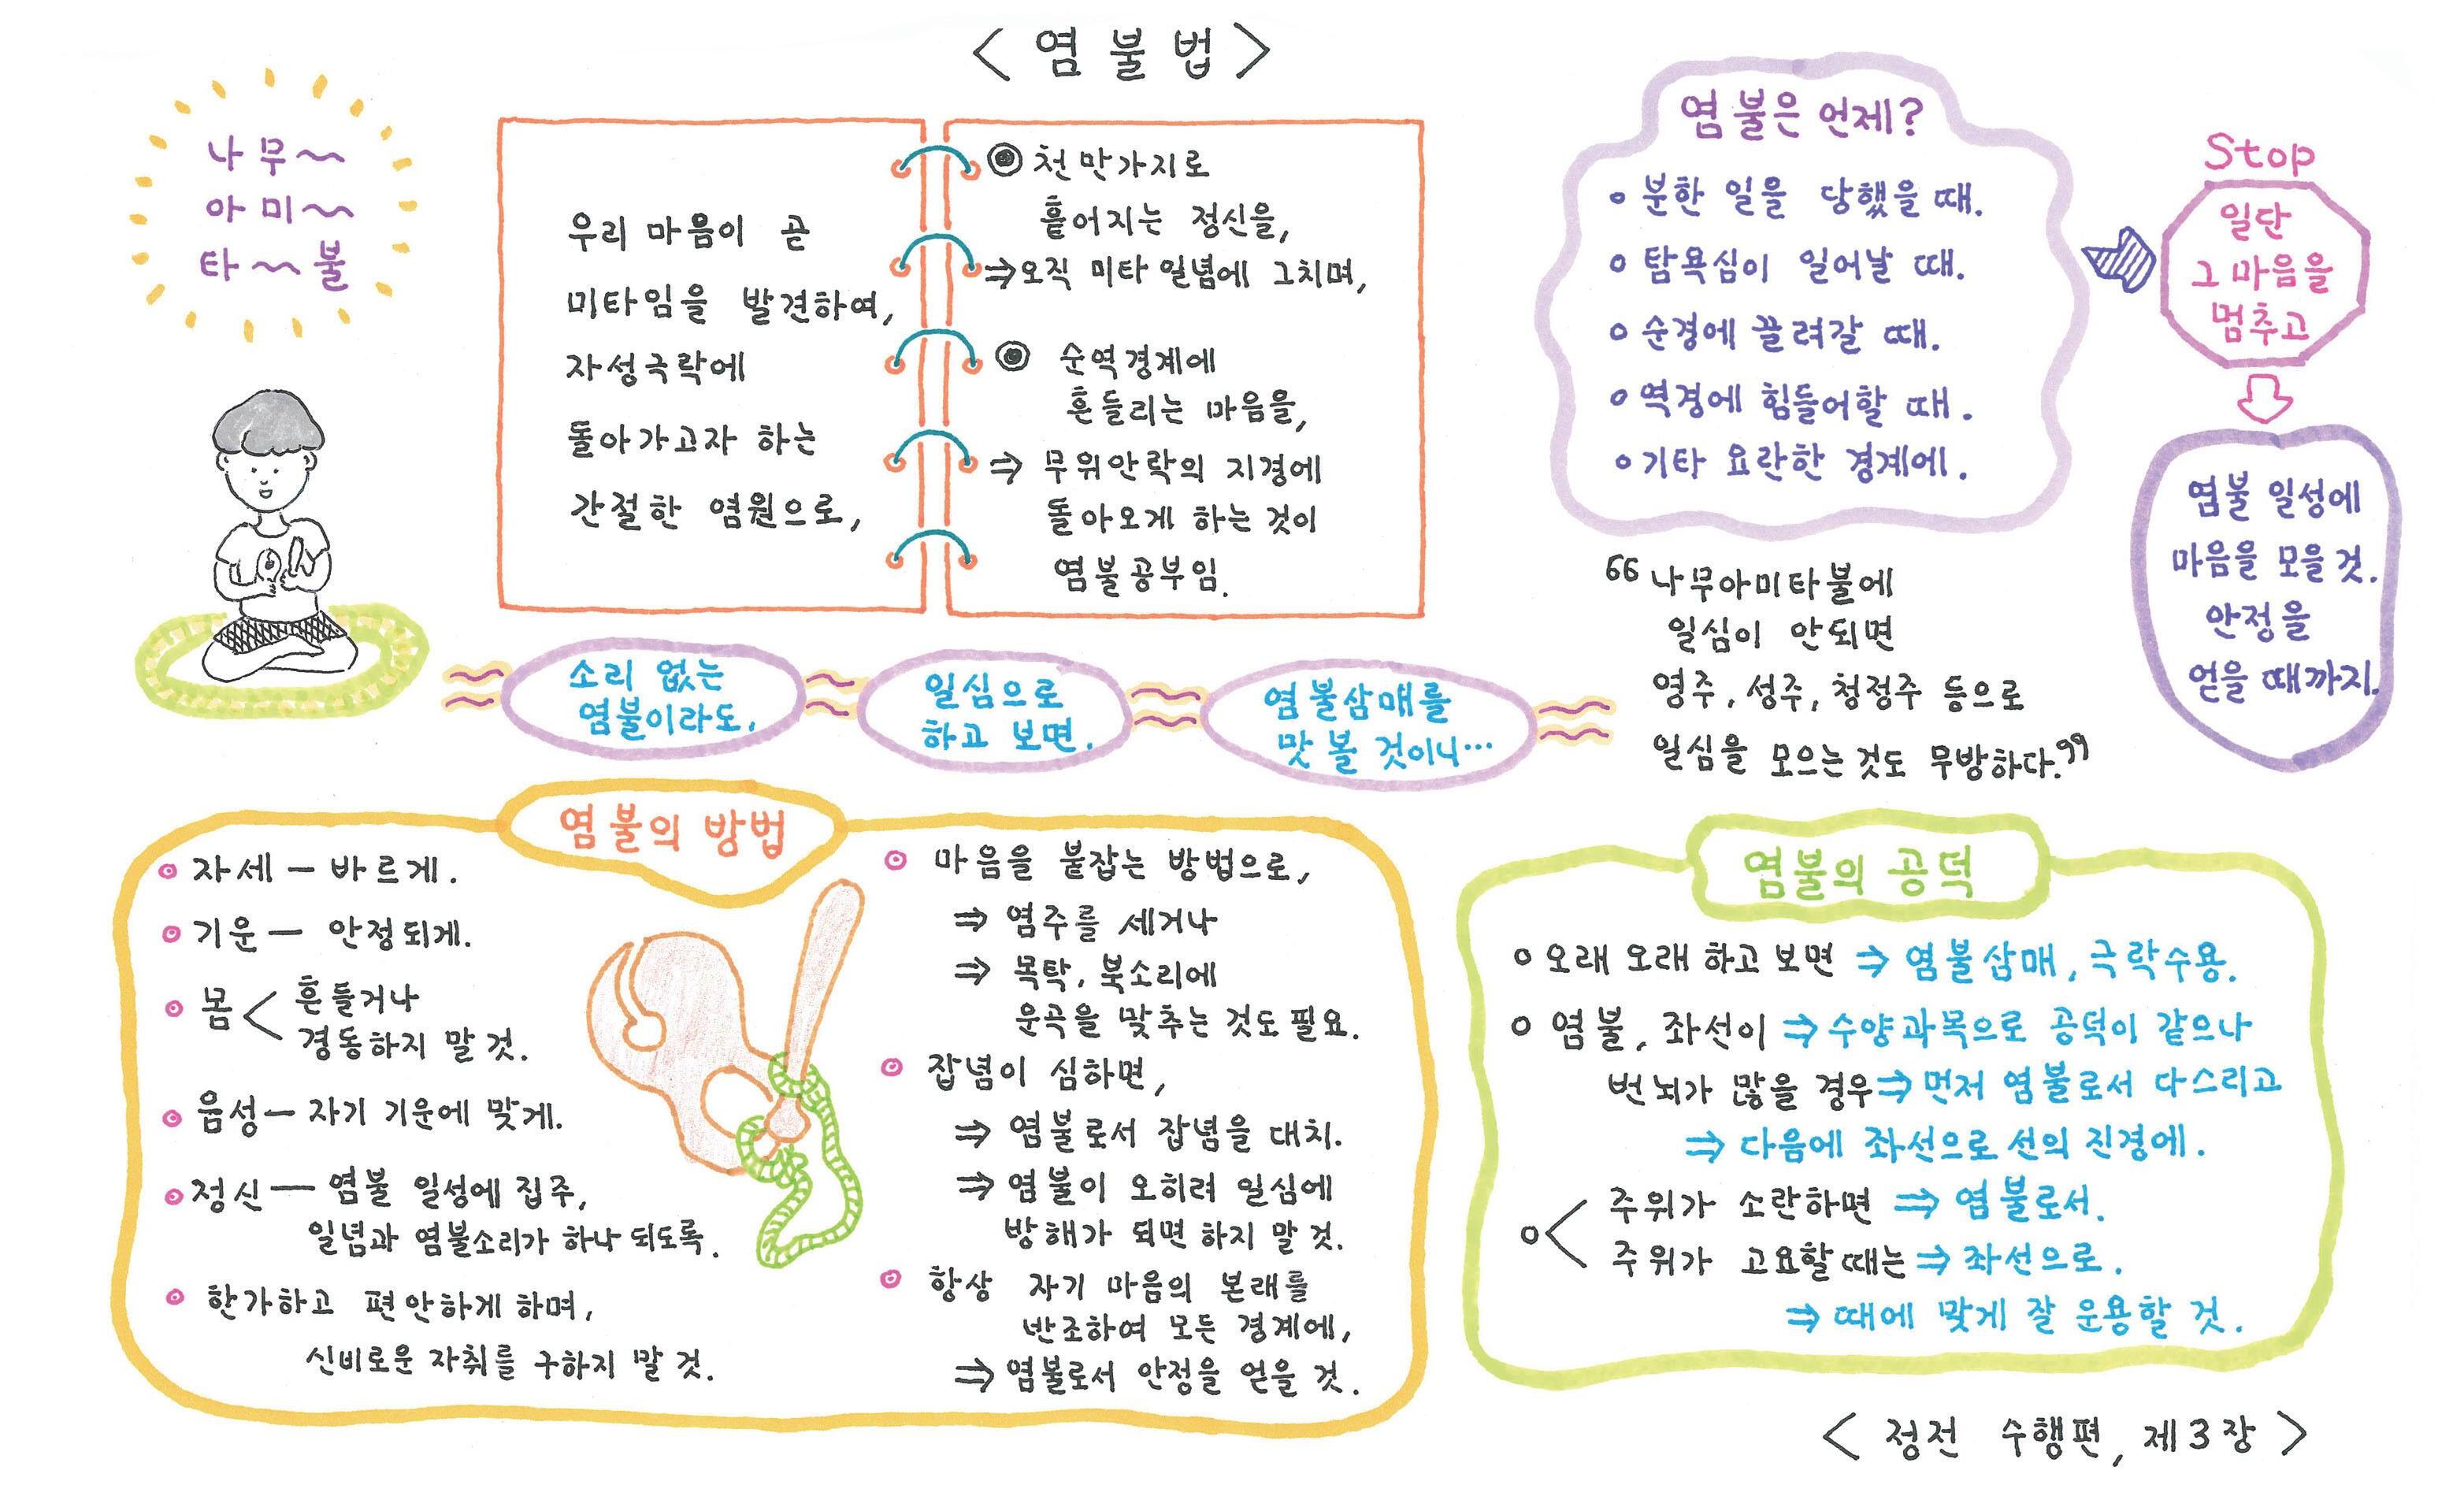 < 염불법 >
나무~
아미~
타~불
우리 마음이 곧
미타임을 발견하여,
자성극락에
돌아가고자 하는
간절한 염원으로,
◉ 천만가지로
흩어지는 정신을,
⇒오직 미타 일념에 그치며,
◉ 순역경계에
흔들리는 마음을,
⇒ 무위안락의 지경에
돌아오게 하는 것이
염불공부임.
염불은 언제?
o 분한 일을 당했을 때.
o 탐욕심이 일어날 때.
o 순경에 끌려갈 때.
o 역경에 힘들어할 때.
o 기타 요란한 경계에.
Stop
일단
그 마음을
멈추고
염불 일성에
마음을 모을 것.
안정을
얻을 때까지.
소리 없는
염불이라도,
일심으로
하고 보면.
염불삼매를
맛 볼 것이니…
“나무아미타불에
일심이 안되면
영주, 성주, 청정주 등으로
일심을 모으는것도 무방하다.”
염불의 방법
자세 - 바르게.
기운 - 안정되게.
몸 < 흔들거나
경동하지 말 것.
음성 - 자기 기운에 맞게.
정신 - 염불 일성에 집주,
일념과 염불소리가 하나 되도록.
한가하고 편안하게 하며,
신비로운 자취를 구하지 말 것.
마음을 붙잡는 방법으로,
⇒ 염주를 세거나
⇒ 목탁, 북소리에
운곡을 맞추는 것도 필요.
잡념이 심하면,
⇒ 염불로서 잡념을 대치.
⇒ 염불이 오히려 일심에
방해가 되면 하지 말 것.
항상 자기 마음의 본래를
반조하여 모든 경계에,
⇒ 염불로서 안정을 얻을 것.
염불의 공덕
o 오래 오래 하고 보면 ⇒ 염불삼매, 극락수용.
o 염불, 좌선이 ⇒ 수양과목으로 공덕이 같으나
번뇌가 많을 경우⇒ 먼저 염불로서 다스리고
⇒ 다음에 좌선으로 선의 진경에.
o < 주위가 소란하면 ⇒ 염불로서.
주위가 고요할 때는 ⇒ 좌선으로.
⇒ 때에 맞게 잘 운용할 것.
< 정전 수행편, 제3장 >